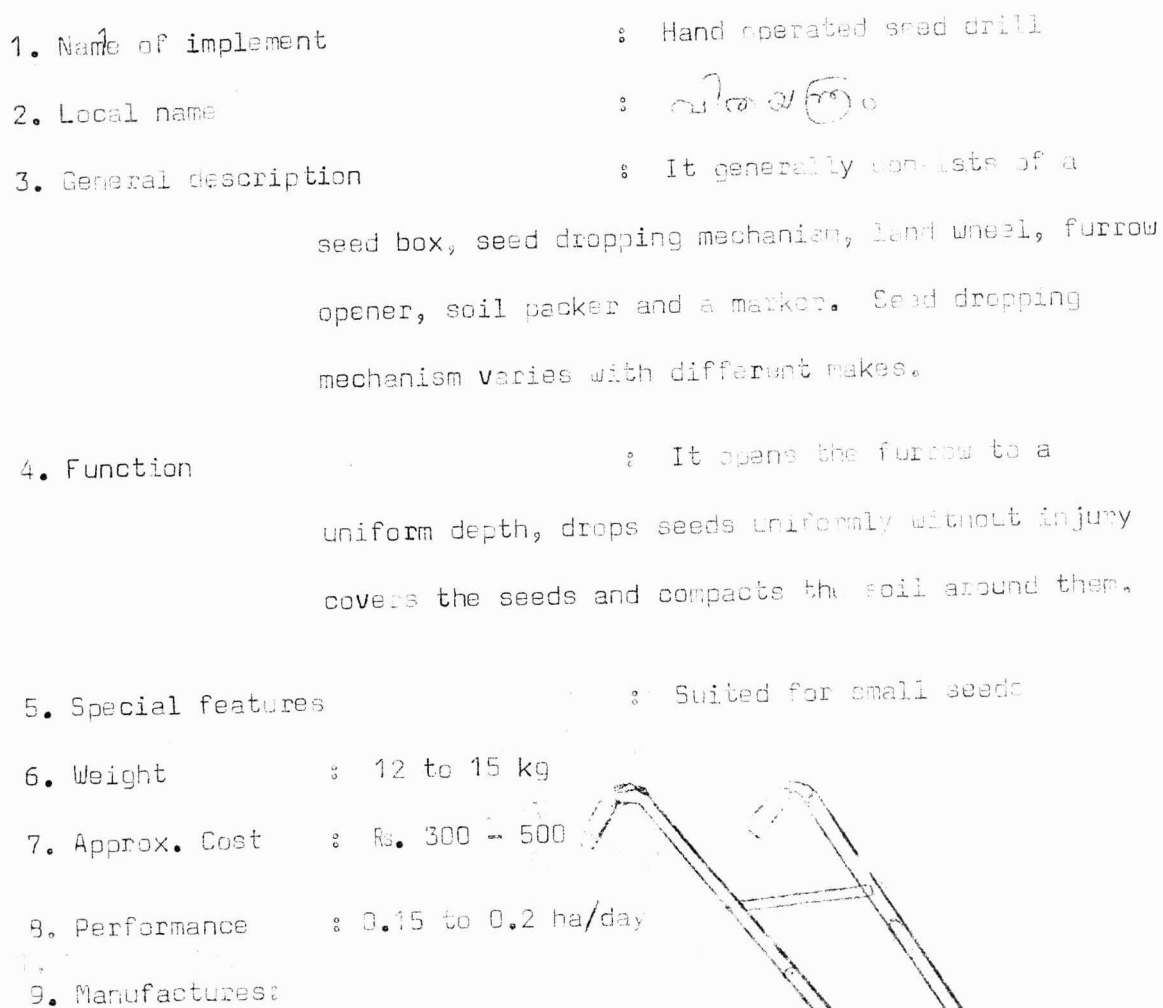 1. Name of implement : Hand operated seed drill
2. Local name : വിതയന്ത്രം
3. General description : It generally consists of a
seed box, seed dropping mechanism, land wheel, furrow
opener, soil packer and a marker. Seed dropping
mechanism varies with different makes.
4. Function : It opens the furrow to a
uniform depth, drops seeds uniformly without injury
covers the seeds and compacts the soil around them.
5. Special features : Suited for small seeds
6. Weight : 12 to 15 kg
7. Approx. Cost : Rs. 300 - 500
8. Performance : 0.15 to 0.2 ha/day
9. Manufactures: